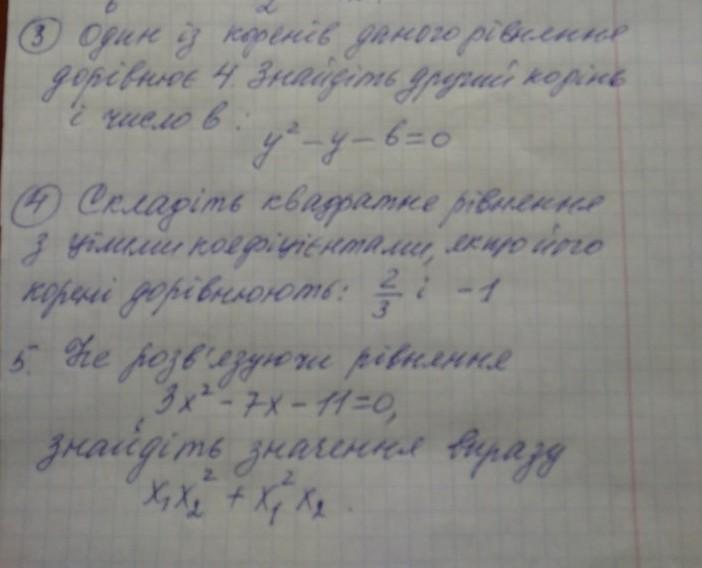 ③ Один із коренів даного рівняння
дорівнює 4. Знайдіть другий корінь
і число в:
y² - y - в = 0
④ Складіть квадратне рівняння
з цілими коефіцієнтами, якщо його
корені дорівнюють: 2/3 і -1
5. Не розв'язуючи рівняння
3x² - 7x - 11 = 0,
знайдіть значення виразу
x₁x₂² + x₁²x₂.